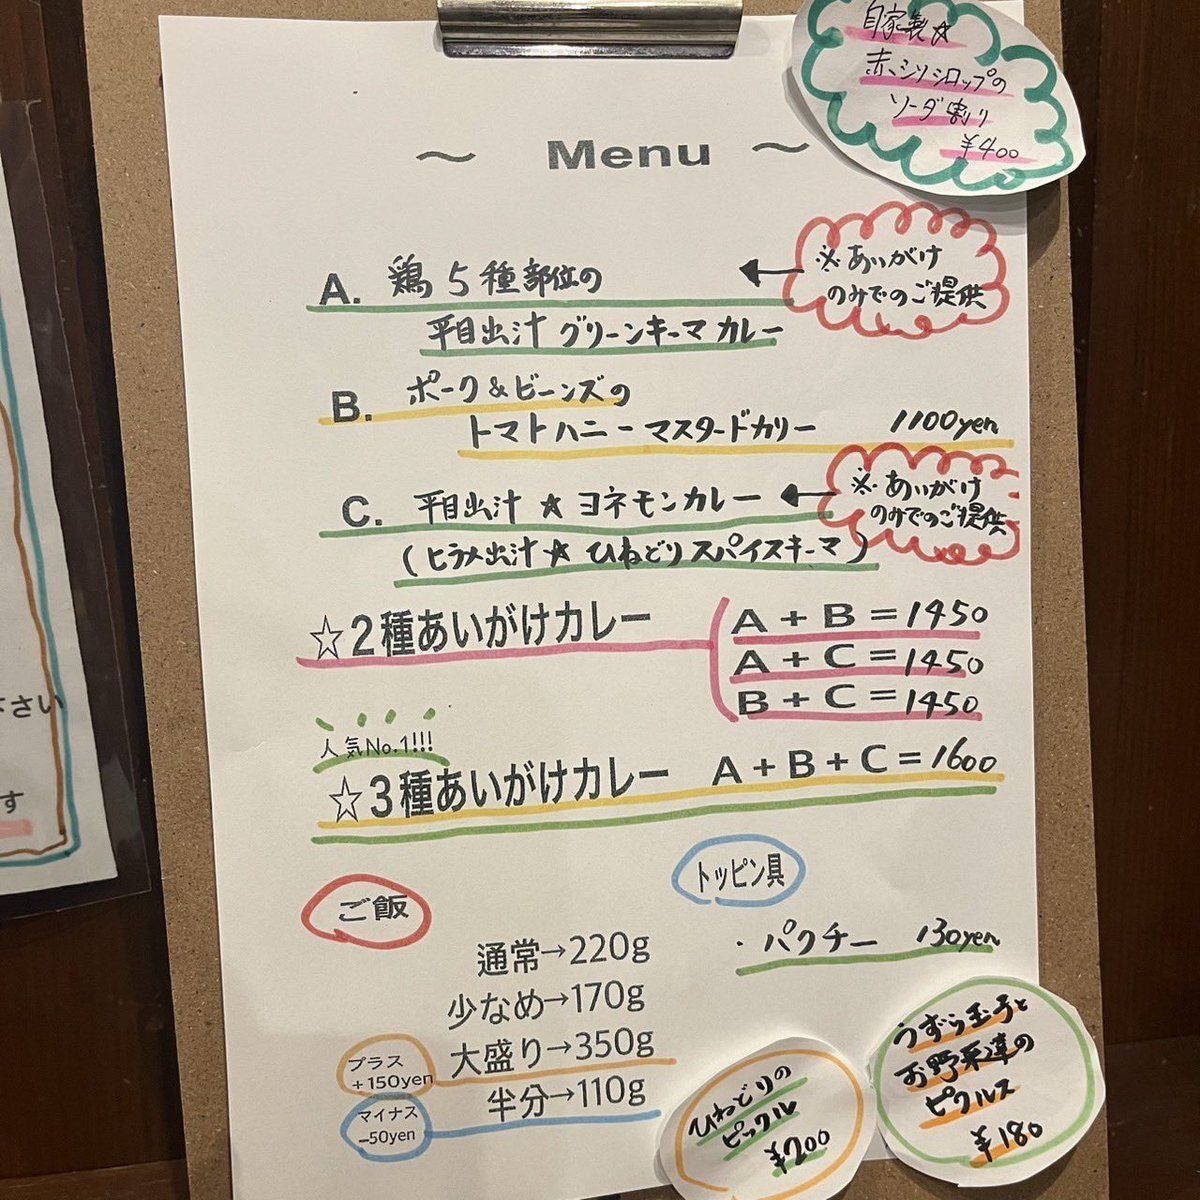 自家製☆
赤シソシロップの
ソーダ割り
¥400
～ Menu ～
A. 鶏5種部位の
平目出汁グリーンキーマカレー
※あいがけ
のみでのご提供
B. ポーク&ビーンズの
トマトハニーマスタードカリー 1100yen
C. 平目出汁★ヨネモンカレー
(ヒラメ出汁★ひねどりスパイスキーマ)
※あいがけ
のみでのご提供
☆2種あいがけカレー
A+B=1450
A+C=1450
B+C=1450
人気No.1!!!
☆3種あいがけカレー A+B+C=1600
ご飯
通常→220g
少なめ→170g
大盛り→350g
プラス
+150yen
半分→110g
マイナス
−50yen
トッピン具
・パクチー 130yen
ひねどりの
ピックル
¥200
うずら玉子と
お野菜達の
ピクルス
¥180
下さい
す